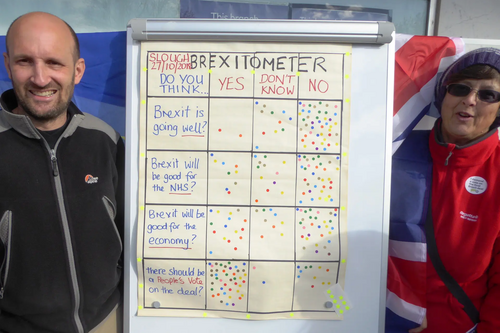 This
SLOUGH
27/10/2018
BREXITOMETER
DO YOU
THINK...
YES
DON'T
KNOW
NO
Brexit is
going well?
Brexit will
be good for
the NHS?
Brexit will be
good for the
economy?
there should be
a People's Vote
on the deal?